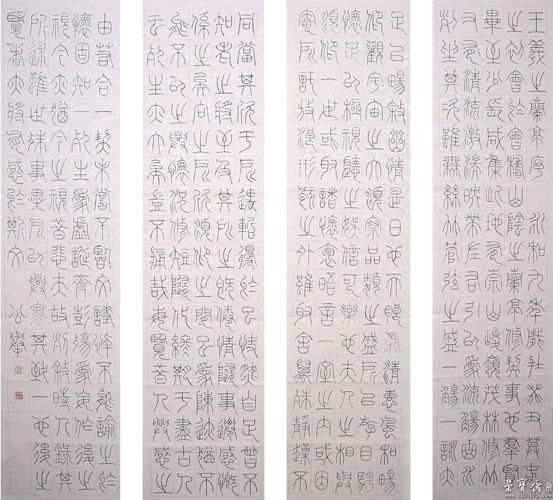 王羲之蘭亭序 永和九年歲在癸丑暮春
之初會於會稽山陰之蘭亭修禊事也羣賢
畢至少長咸集此地有崇山峻嶺茂林修竹
又有清流激湍映帶左右引以為流觴曲水
列坐其次雖無絲竹管弦之盛一觴一詠亦
足以暢敘幽情是日也天朗氣清惠風和暢
仰觀宇宙之大俯察品類之盛所以遊目騁
懷足以極視聽之娛信可樂也夫人之相與
俯仰一世或取諸懷抱悟言一室之內或因
寄所託放浪形骸之外雖取舍萬殊靜躁不
同當其欣於所遇暫得於己快然自足曾不
知老之將至及其所之既倦情隨事遷感慨
係之矣向之所欣俯仰之間已為陳迹猶不
能不以之興懷況修短隨化終期於盡古人
云死生亦大矣豈不痛哉每覽昔人興感之
由若合一契未嘗不臨文嗟悼不能喻之於
懷固知一死生為虛誕齊彭殤為妄作後之
視今亦猶今之視昔悲夫故列敘時人錄其
所述雖世殊事異所以興懷其致一也後之
覽者亦將有感於斯文